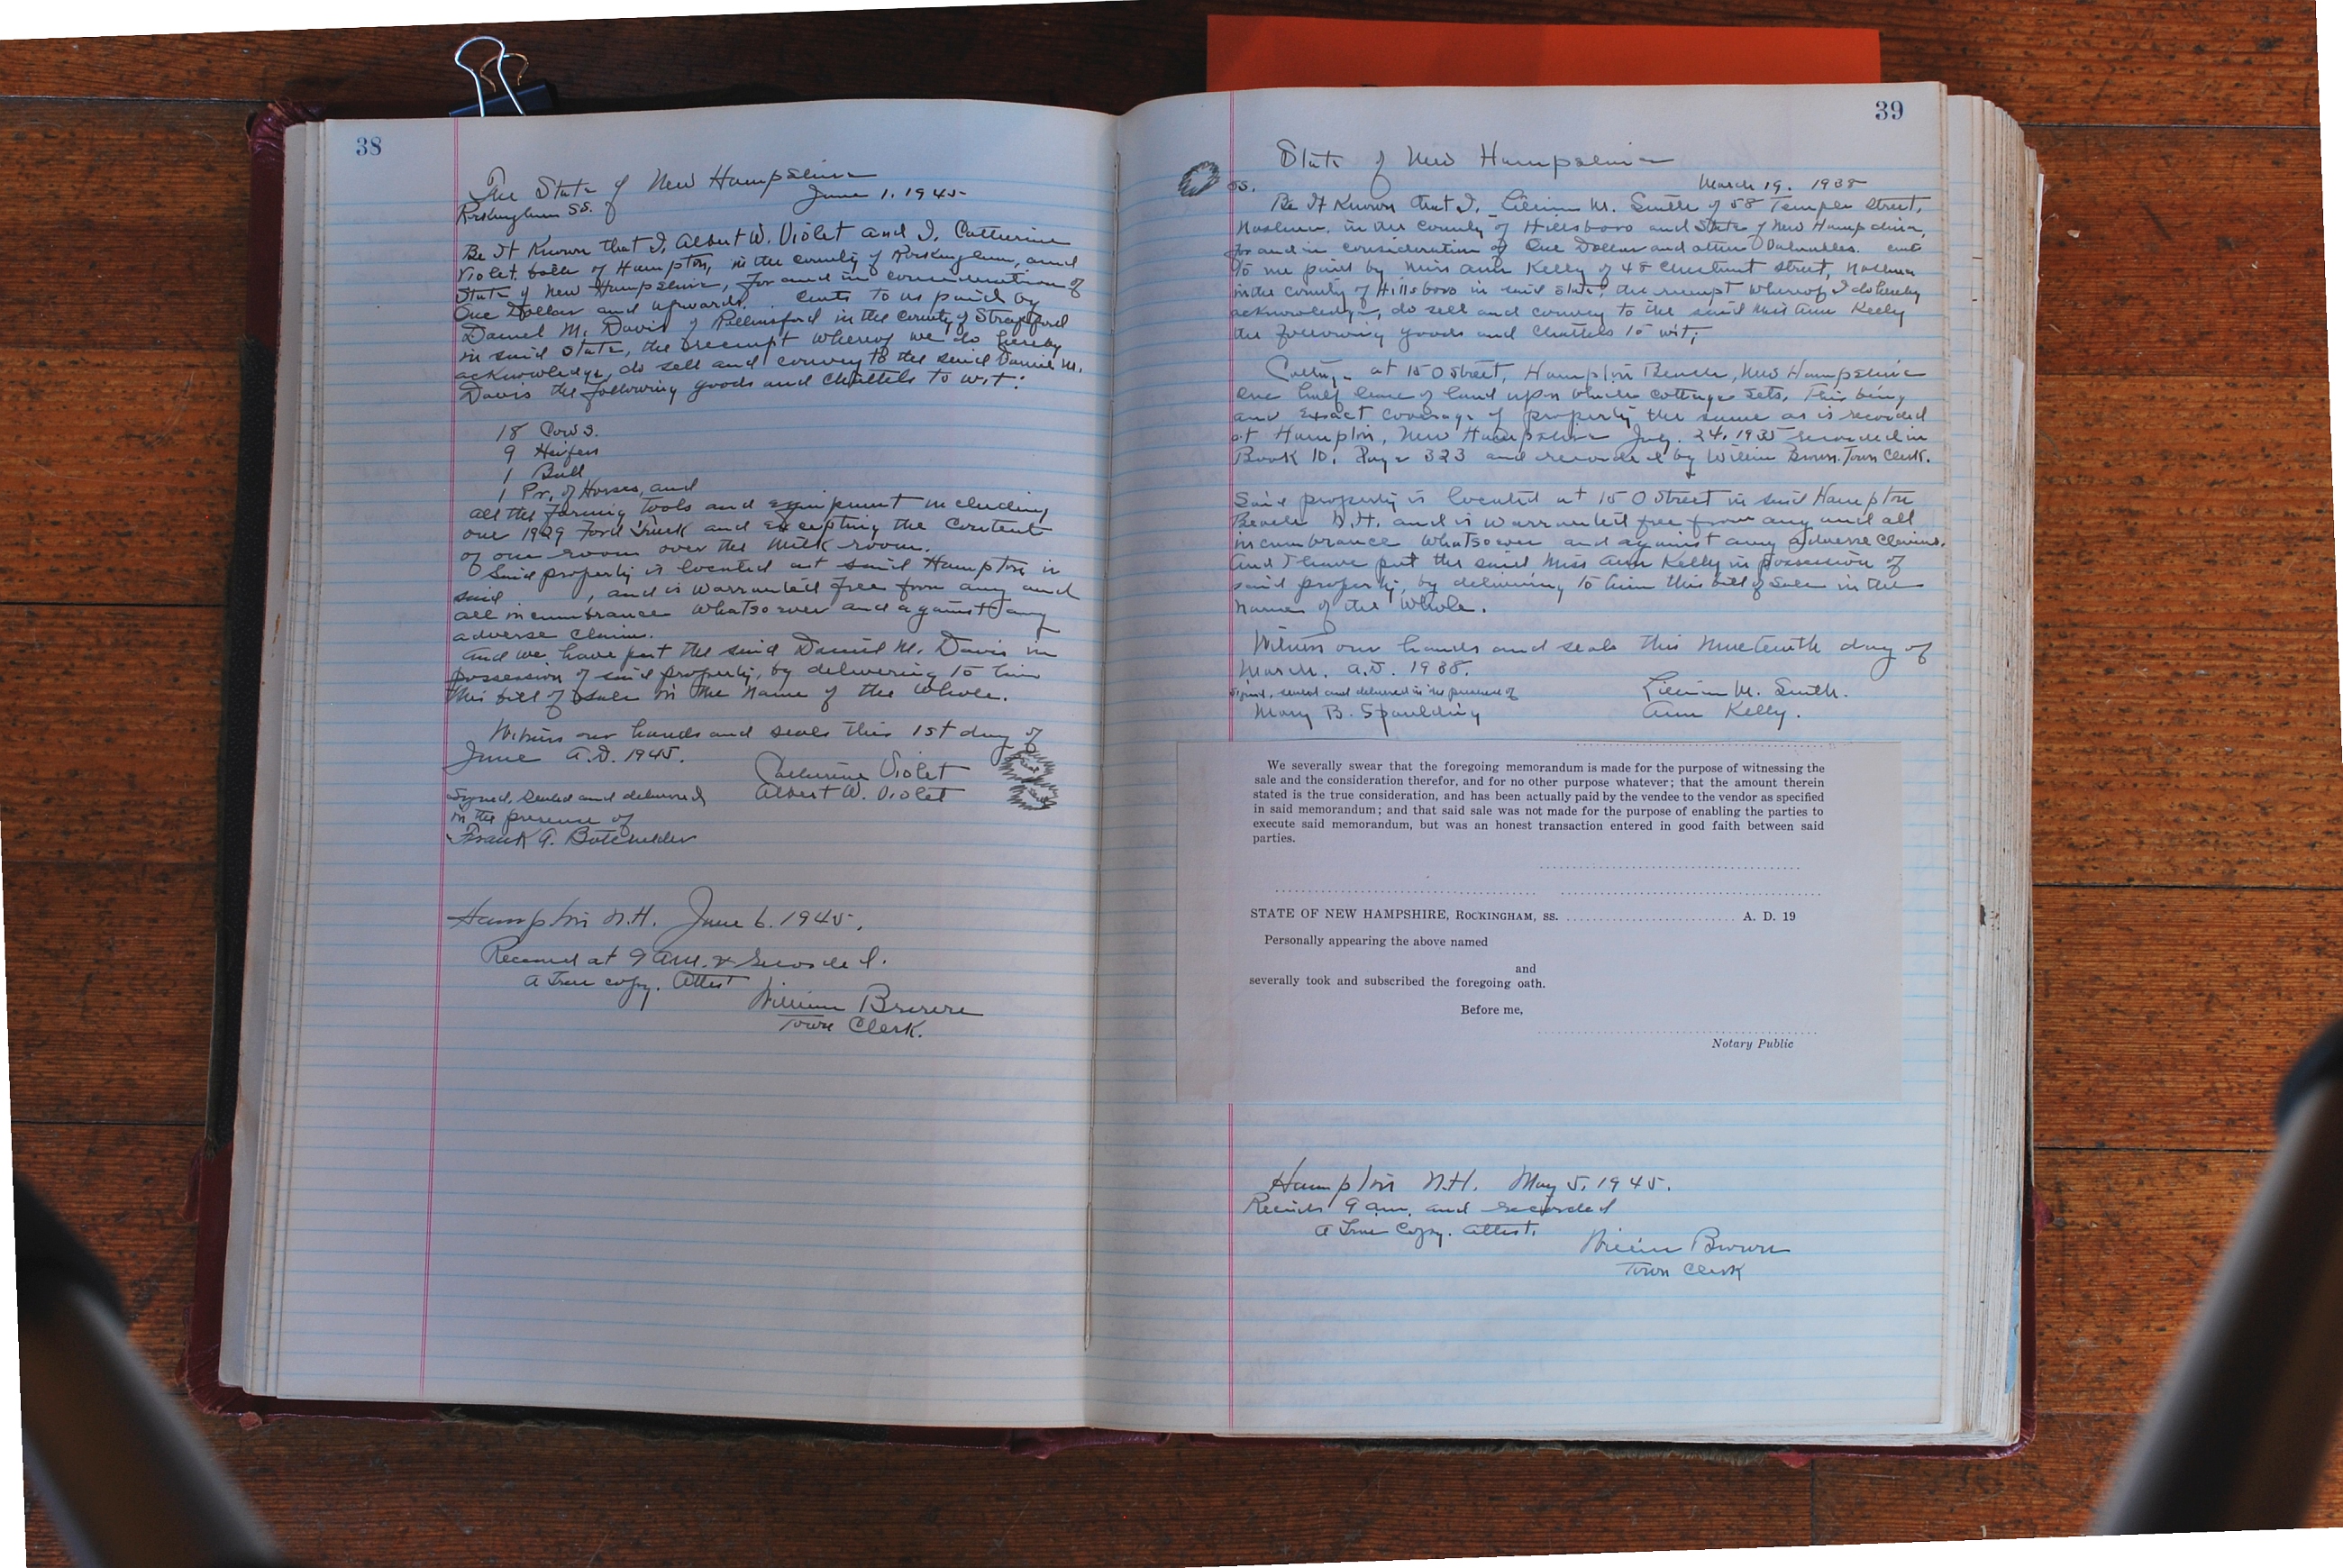 38
The State of New Hampshire
June 1. 1945
Rockingham SS.
Be It Known that I, Albert W. Violet and I, Catherine
Violet. both of Hampton, in the county of Rockingham, and
State of New Hampshire, for and in consideration of
One Dollar and upwards. cents to us paid by
Daniel M. Davis of Rollinsford in the County of Strafford
in said State, the receipt whereof we do hereby
acknowledge, do sell and convey to the said Daniel M.
Davis the following goods and chattels to wit:
18 Cows.
9 Heifers
1 Bull
1 Pr. of Horses, and
all the farming tools and equipment including
our 1929 Ford Truck and excepting the content
of one room over the Milk room.
Said property is located at said Hampton in
said , and is warranted free from any and
all incumbrance whatsoever and against any
adverse claim.
And we have put the said Daniel M. Davis in
possession of said property, by delivering to him
this bill of sale in the name of the whole.
Witness our hands and seals this 1st day of
June A.D. 1945.
Catherine Violet
Albert W. Violet
Signed, sealed and delivered
in the presence of
Frank A. Batchelder
Hampton N.H. June 6. 1945.
Received at 9 A.M. & recorded.
A True copy. Attest
William Brown
Town Clerk.
39
State of New Hampshire
SS.
March 19. 1938
Be It Known that I, Lillian M. Smith of 58 Temple Street,
Nashua, in the County of Hillsboro and State of New Hampshire,
for and in consideration of One Dollar and other Valuables. cents
to me paid by Miss Ann Kelly of 48 Chestnut Street, Nashua
in the county of Hillsboro in said State, the receipt whereof I do hereby
acknowledge, do sell and convey to the said Miss Ann Kelly
the following goods and chattels to wit;
Cottage at 15 O Street, Hampton Beach, New Hampshire
One half lease of land upon which cottage sets. This being
and exact coverage of property the same as is recorded
at Hampton, New Hampshire July. 24, 1935 recorded in
Book 10. Page 323 and recorded by William Brown. Town Clerk.
Said property is located at 15 O Street in said Hampton
Beach N.H. and is warranted free from any and all
incumbrance whatsoever and against any adverse claims.
And I have put the said Miss Ann Kelly in possession of
said property, by delivering to him this bill of sale in the
name of the whole.
Witness our hands and seals this Nineteenth day of
March. A.D. 1938.
Signed, sealed and delivered in the presence of
Lillian M. Smith.
Mary B. Spaulding
Ann Kelly.
We severally swear that the foregoing memorandum is made for the purpose of witnessing the
sale and the consideration therefor, and for no other purpose whatever; that the amount therein
stated is the true consideration, and has been actually paid by the vendee to the vendor as specified
in said memorandum; and that said sale was not made for the purpose of enabling the parties to
execute said memorandum, but was an honest transaction entered in good faith between said
parties.
STATE OF NEW HAMPSHIRE, ROCKINGHAM, SS. A. D. 19
Personally appearing the above named
and
severally took and subscribed the foregoing oath.
Before me,
Notary Public
Hampton N.H. May 5. 1945.
Received 9 a.m. and recorded
A True Copy. Attest.
William Brown
Town Clerk